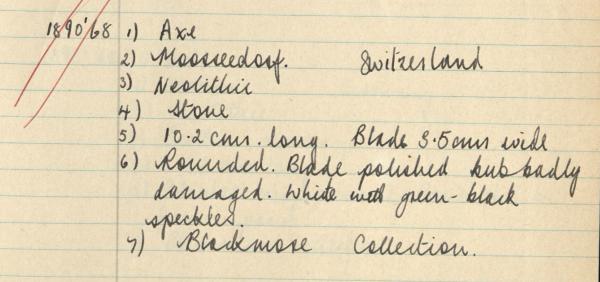 1890'68 1) Axe
2) Mooseedorf. Switzerland
3) Neolithic
4) Stone
5) 10.2 cms. long. Blade 3.5cms wide
6) Rounded. Blade polished but badly
damaged. White with green-black
speckles.
7) Blackmore Collection.